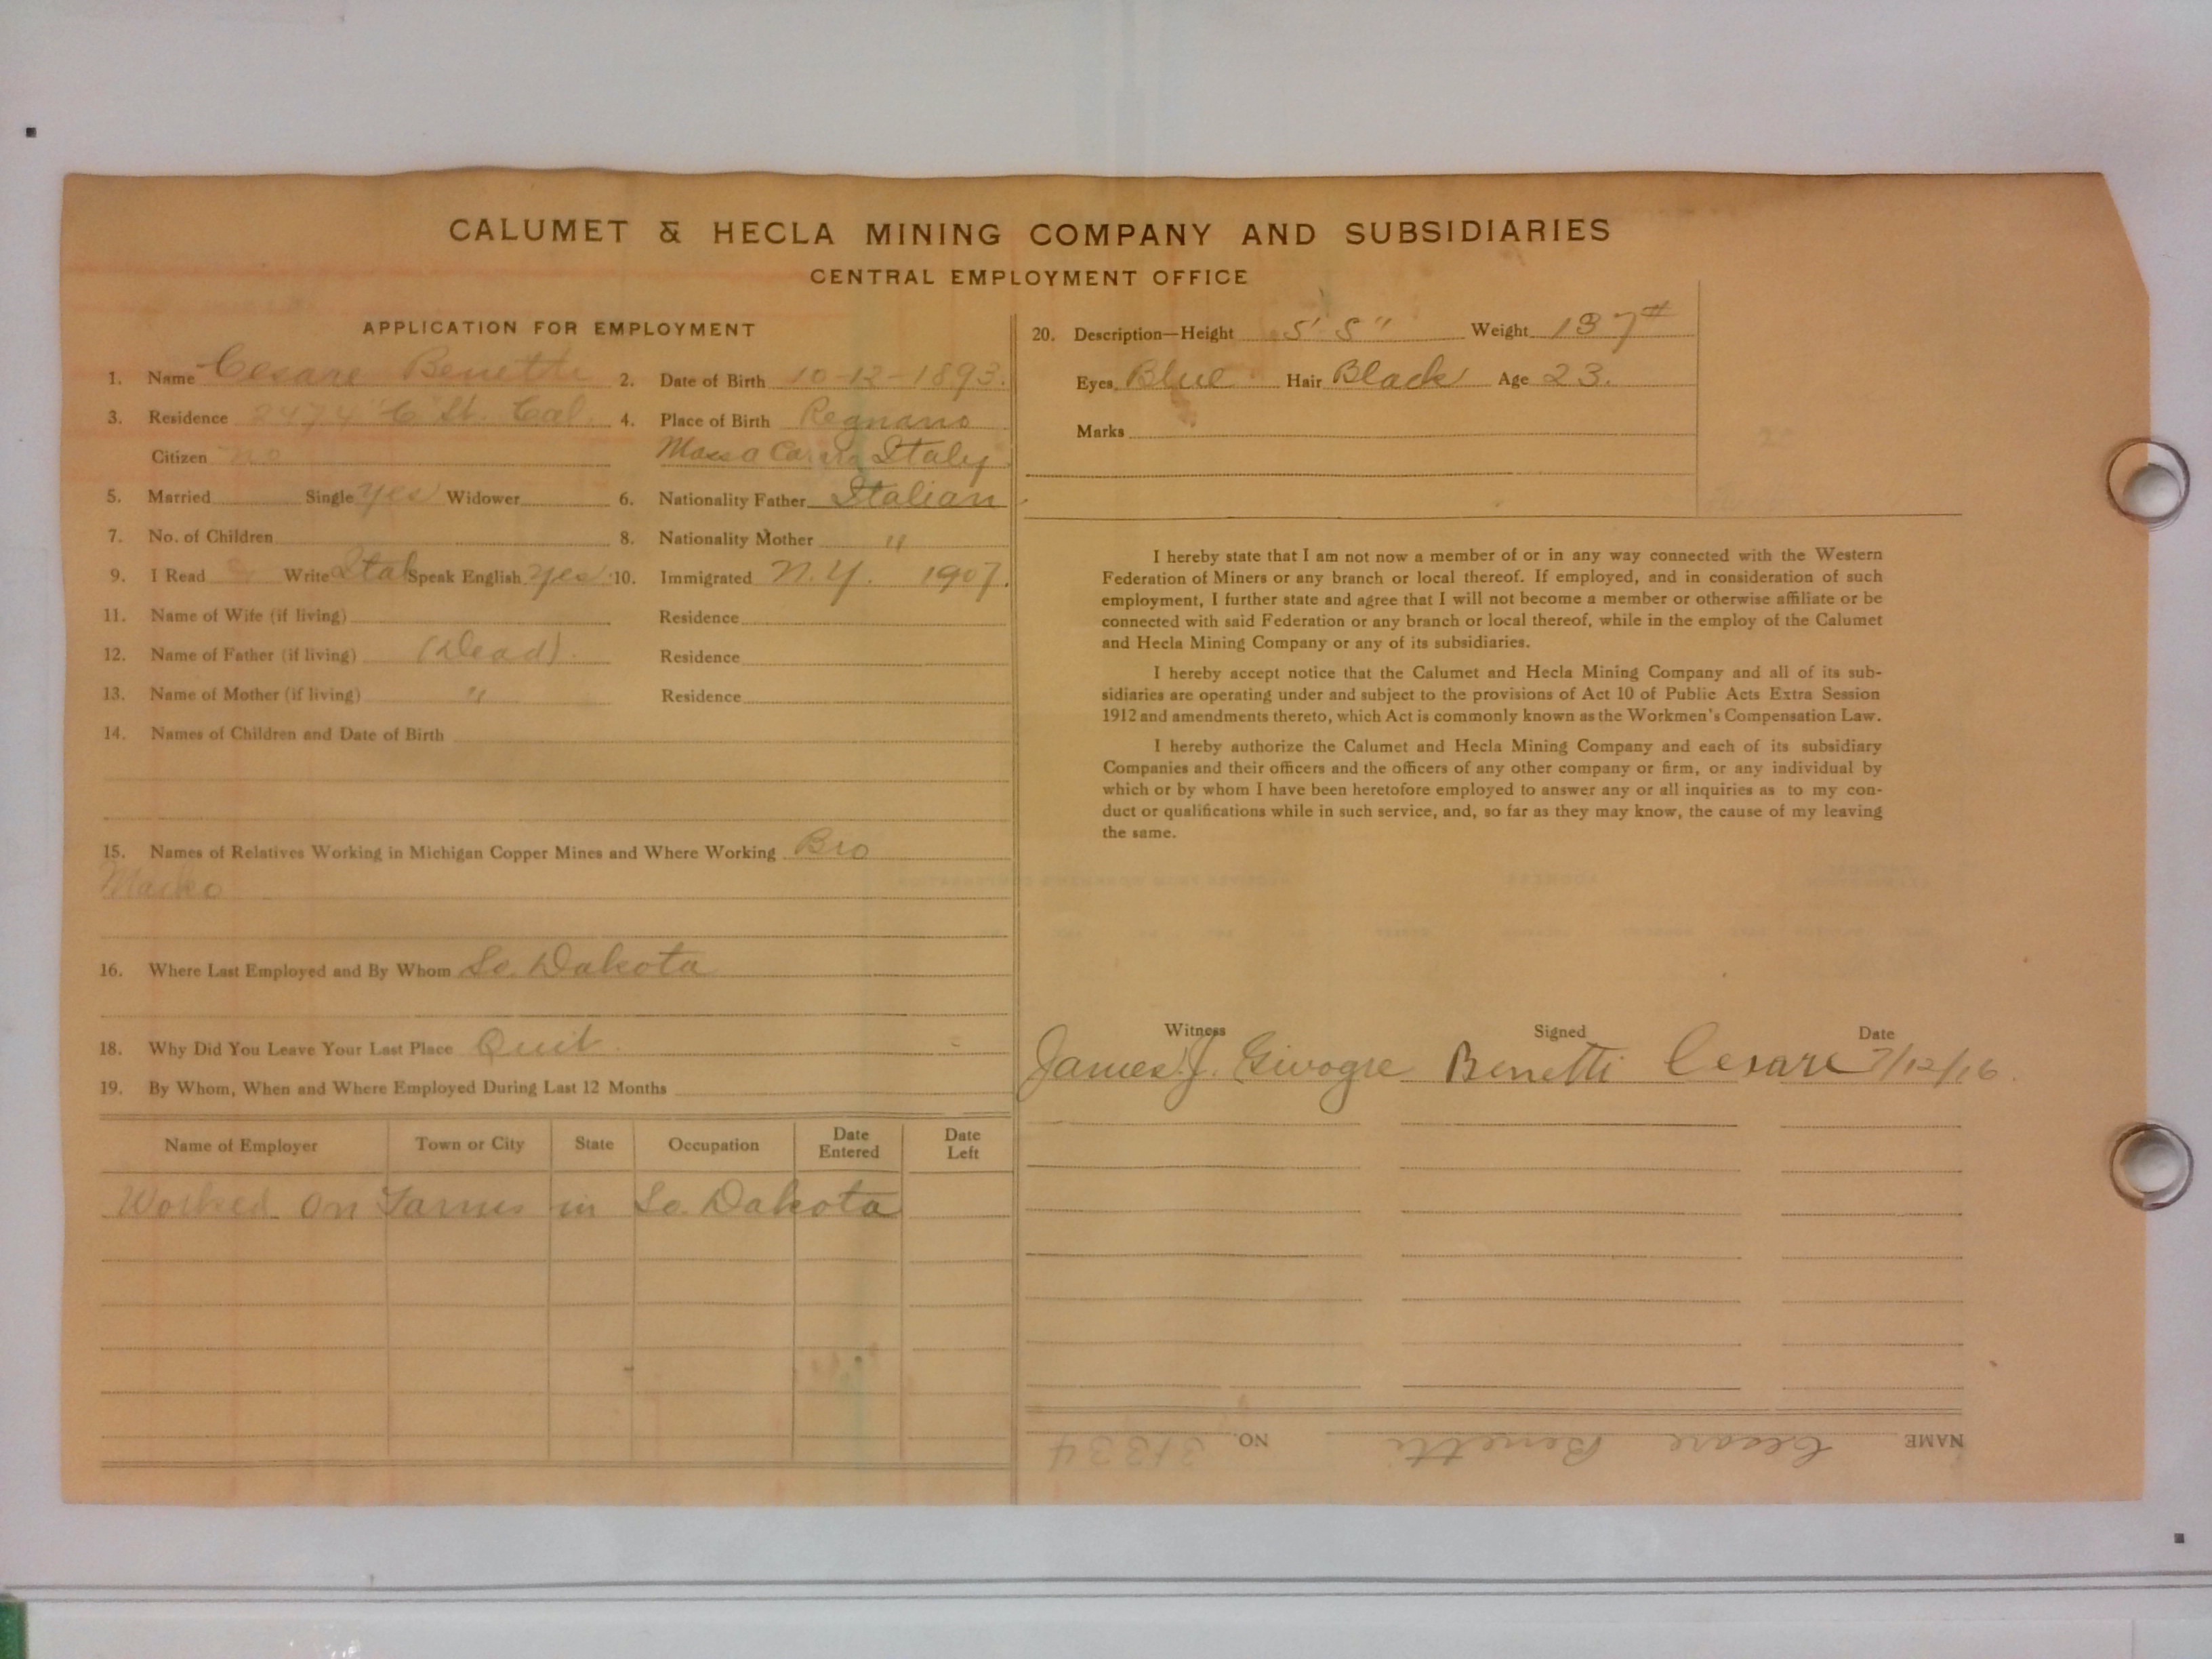 CALUMET & HECLA MINING COMPANY AND SUBSIDIARIES
CENTRAL EMPLOYMENT OFFICE
APPLICATION FOR EMPLOYMENT
1. Name Cesare Benetti 2. Date of Birth 10-12-1893.
3. Residence 2474 "C" St. Cal. 4. Place of Birth Regnano
Citizen no Massa Carara Italy
5. Married Single yes Widower 6. Nationality Father Italian
7. No. of Children 8. Nationality Mother "
9. I Read Write Ital Speak English yes 10. Immigrated N.Y. 1907.
11. Name of Wife (if living) Residence
12. Name of Father (if living) (Dead). Residence
13. Name of Mother (if living) " Residence
14. Names of Children and Date of Birth
15. Names of Relatives Working in Michigan Copper Mines and Where Working Bro
16. Where Last Employed and By Whom So. Dakota
18. Why Did You Leave Your Last Place Quit.
19. By Whom, When and Where Employed During Last 12 Months
Name of Employer Town or City State Occupation Date Entered Date Left
Worked On Farms in So. Dakota
20. Description—Height 5' 5" Weight 137#
Eyes Blue Hair Black Age 23.
Marks
I hereby state that I am not now a member of or in any way connected with the Western
Federation of Miners or any branch or local thereof. If employed, and in consideration of such
employment, I further state and agree that I will not become a member or otherwise affiliate or be
connected with said Federation or any branch or local thereof, while in the employ of the Calumet
and Hecla Mining Company or any of its subsidiaries.
I hereby accept notice that the Calumet and Hecla Mining Company and all of its sub-
sidiaries are operating under and subject to the provisions of Act 10 of Public Acts Extra Session
1912 and amendments thereto, which Act is commonly known as the Workmen's Compensation Law.
I hereby authorize the Calumet and Hecla Mining Company and each of its subsidiary
Companies and their officers and the officers of any other company or firm, or any individual by
which or by whom I have been heretofore employed to answer any or all inquiries as to my con-
duct or qualifications while in such service, and, so far as they may know, the cause of my leaving
the same.
Witness Signed Date
James J. Givogre Benetti Cesare 7/12/16.
NAME Cesare Benetti NO. 31334